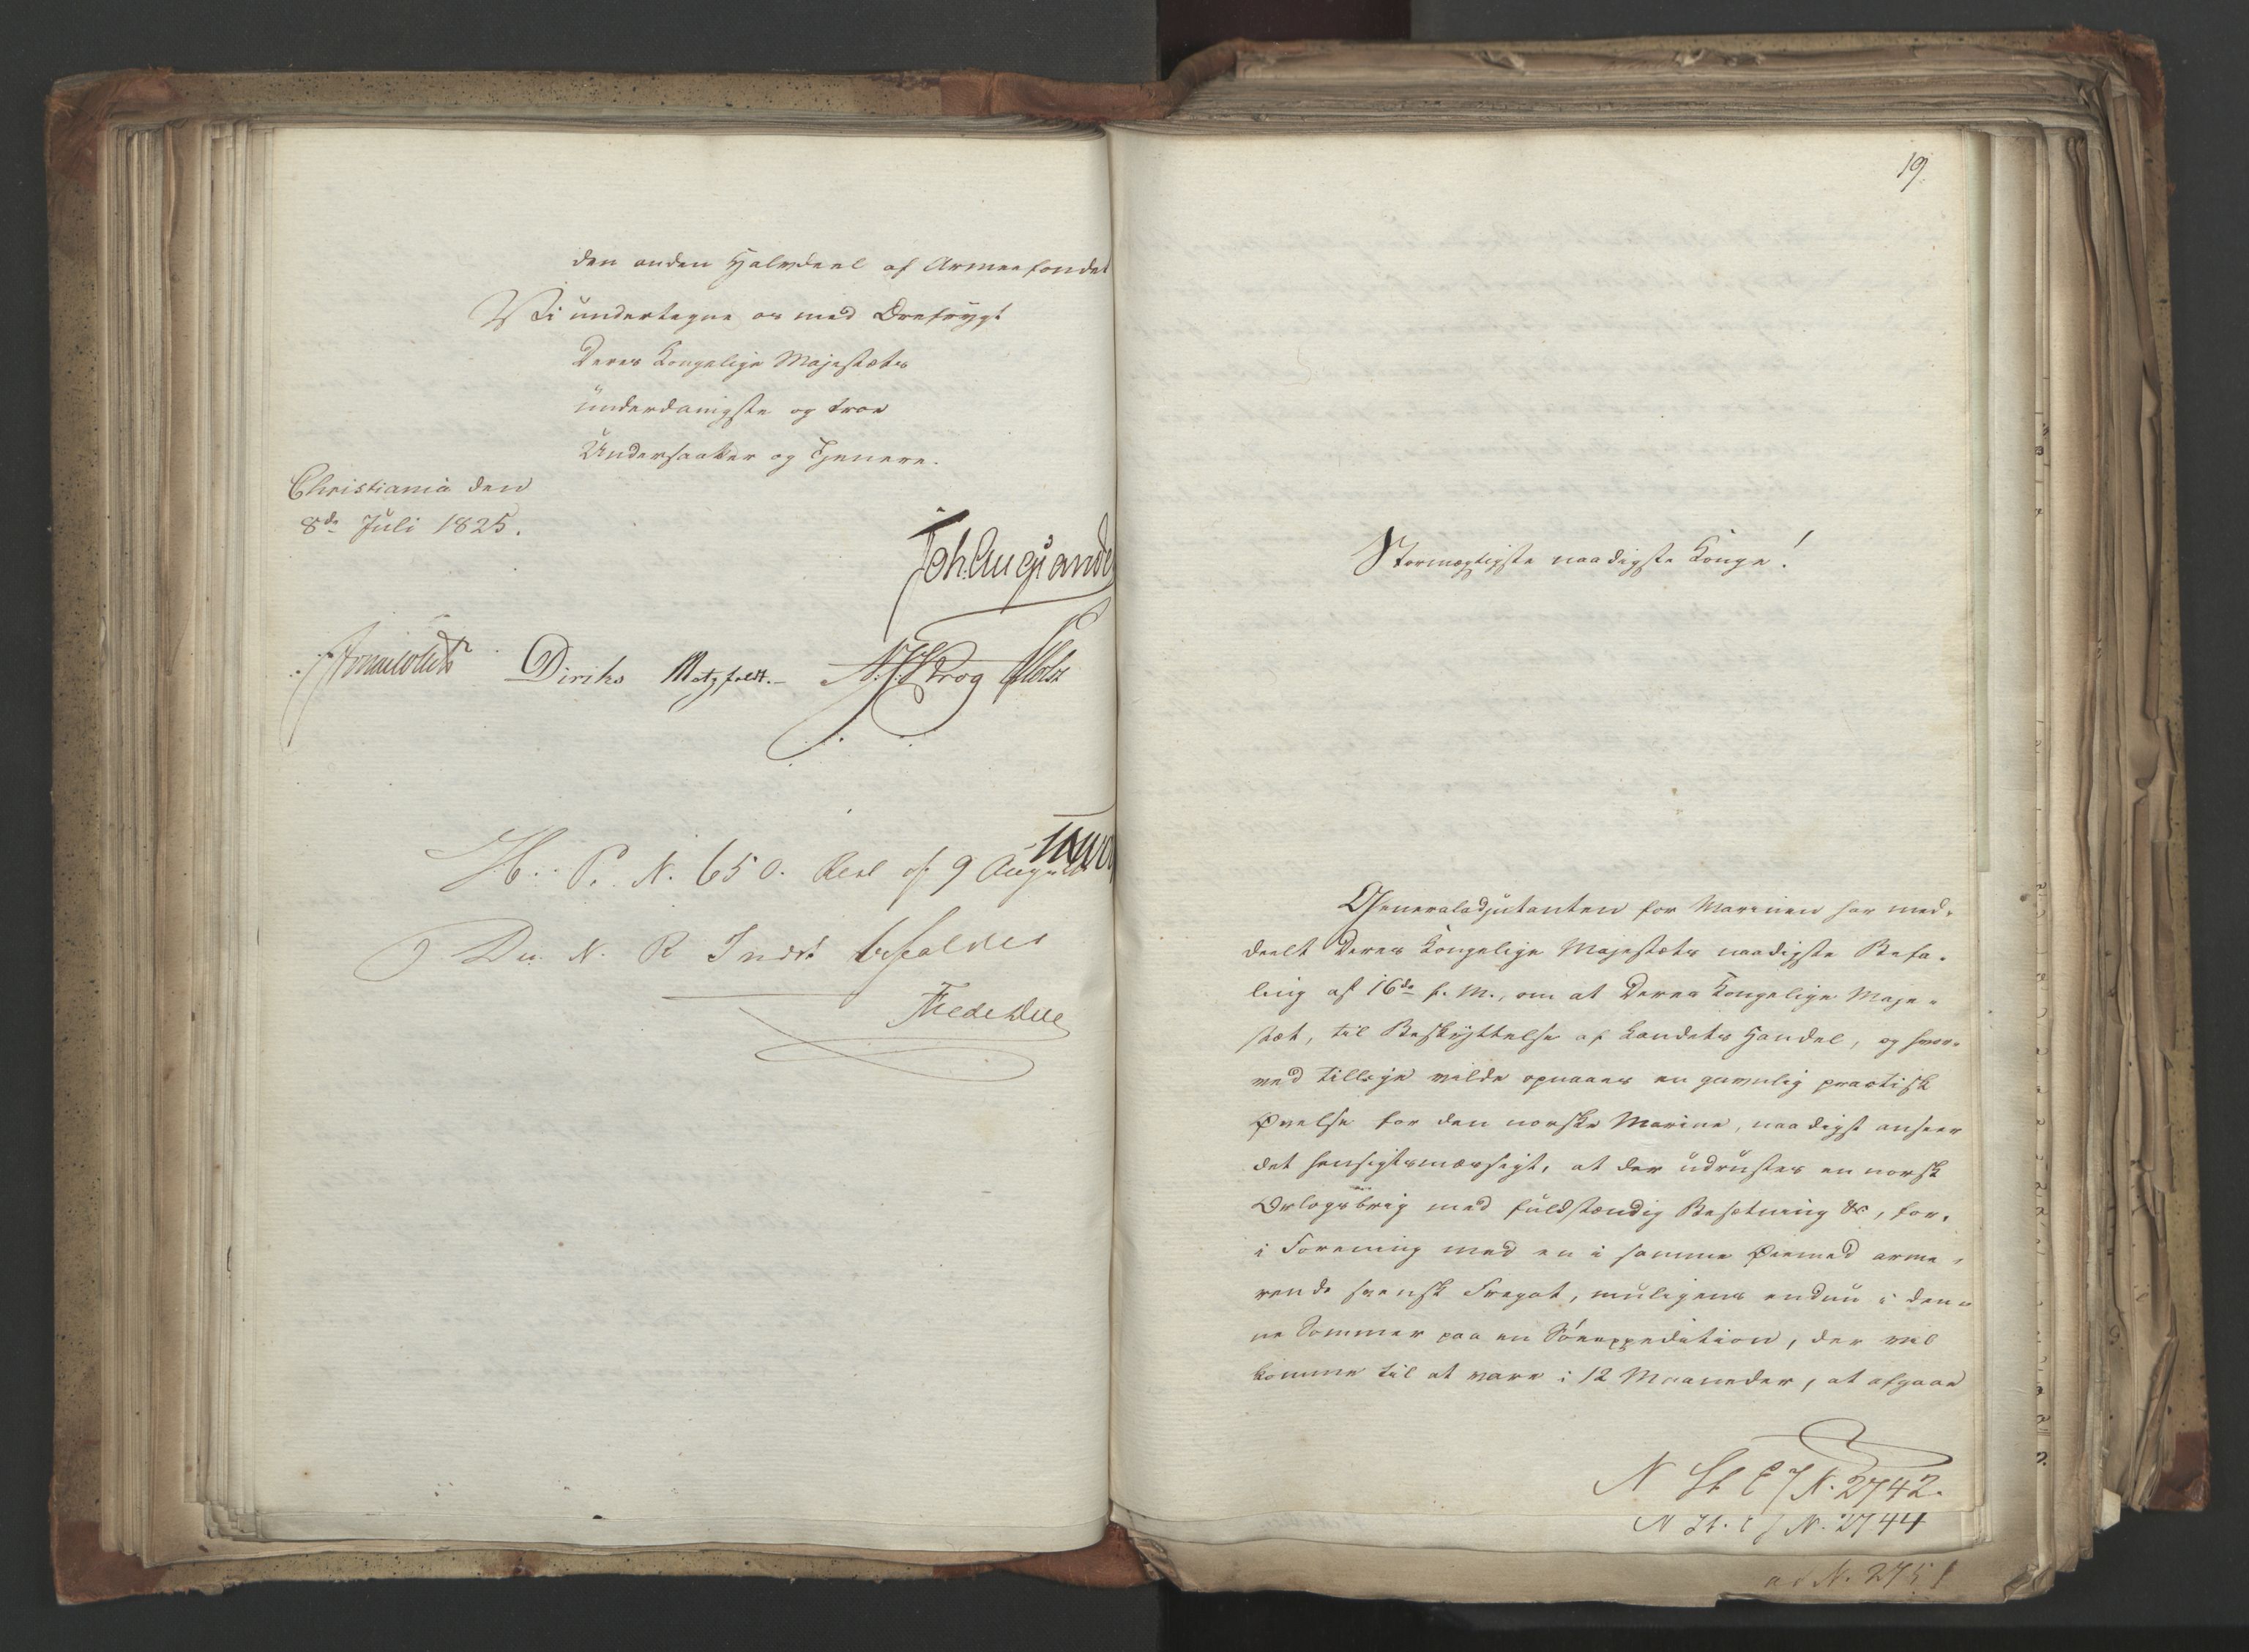 den anden Halvdeel af Armeefondet
Vi undertegne os med Ærefrygt
Deres Kongelige Majestæts
underdanigste og troe
Undersaatter og Tjenere.
Christiania den
8de Juli 1825.
Joh. Aug. Sande
Diriks Motzfeldt. Krog Holst
H. P. N. 650. Resl af 9 August
N. R. Indst befaldes
19.
Stormægtigste naadigste Konge!
Generaladjutanten for Marinen har med-
deelt Deres Kongelige Majestæts naadigste Befa-
ling af 16de f. M., om at Deres Kongelige Maje-
stæt, til Beskyttelse af Landets Handel, og hvor-
ved tillige vilde opnaaes en gavnlig practisk
Øvelse for den norske Marine, naadigst anseer
det hensigtsmæssigt, at der udrustes en norsk
Orlogsbrig med fuldstændig Besætning &c, for,
i Forening med en i samme Øiemed arme-
rende svensk Fregat, muligens endnu i den-
ne Sommer paa en Søeexpedition, der vil
komme til at vare i 12 Maaneder, at afgaae
N St E J N. 2742.
N St. E J N. 2744
ad N. 2751